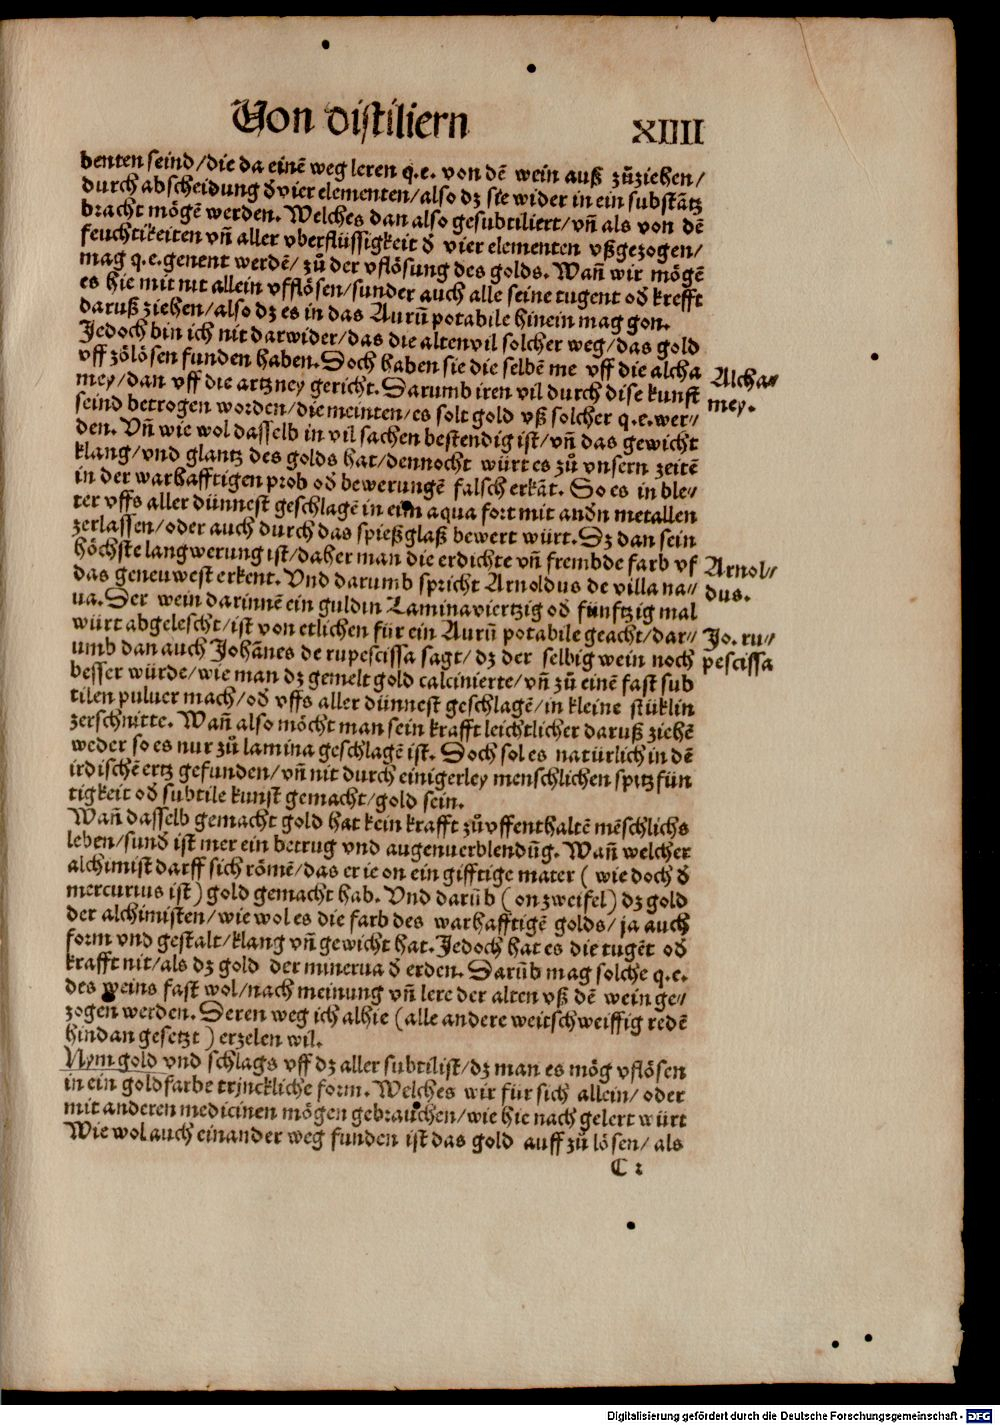 Von distiliern
XIIII
benten seind/die da einē weg leren q.e. von dē wein auß zůziehen/
durch abscheidung d̄ vier elementen/also dz sie wider in ein substātz
bracht mögē werden. Welches dan also gesubtiliert/vn̄ als von dē
feuchtikeiten vn̄ aller vberflüssigkeit d̄ vier elementen vßgezogen/
mag q.e.genent werdē/ zů der vflösung des golds. Wan̄ wir mögē
es hie mit nit allein vfflösen/sunder auch alle seine tugent od̄ krefft
daruß ziehen/also dz es in das Aurū potabile hinein mag gon.
Jedoch bin ich nit darwider/das die alten vil solcher weg/das gold
vff zölösen funden haben. Doch haben sie die selbē me vff die alcha
mey/dan vff die artzney gericht. Darumb iren vil durch dise kunst
seind betrogen worden/die meinten/es solt gold vß solcher q.e.wer//
den. Vn̄ wie wol dasselb in vil sachen bestendig ist/vn̄ das gewicht
klang/vnd glantz des golds hat/dennocht würt es zů vnsern zeitē
in der warhafftigen prob od̄ bewerungē falsch erkāt. So es in ble//
ter vffs aller dünnest geschlagē in eim aqua fort mit andn metallen
zerlassen/oder auch durch das spießglaß bewert würt. Dz dan sein
höchste langwerung ist/daher man die erdichte vn̄ frembde farb vf
das geneuwest erkent. Vnd darumb spricht Arnoldus de villa na//
ua. Der wein darinnē ein guldin Lamina viertzig od̄ fünftzig mal
würt abgelescht/ist von etlichen für ein Aurū potabile geacht/dar//
umb dan auch Johānes de rupescissa sagt/ dz der selbig wein noch
besser würde/wie man dz gemelt gold calcinierte/vn̄ zů einē fast sub
tilen puluer mach/od̄ vffs aller dünnest geschlagē/in kleine stüklin
zerschnitte. Wan̄ also möcht man sein krafft leichtlicher daruß ziehē
weder so es nur zů lamina geschlagē ist. Doch sol es natürlich in dē
irdischē ertz gefunden/vn̄ nit durch einigerley menschlichen spitzfün
tigkeit od̄ subtile kunst gemacht/gold sein.
Wan̄ dasselb gemacht gold hat kein krafft zů vffenthaltē mēschlichs
leben/sund̄ ist mer ein betrug vnd augenuerblendūg. Wan̄ welcher
alchimist darff sich römē/das er ie on ein gifftige mater ( wie doch d̄
mercurius ist ) gold gemacht hab. Vnd darūb ( on zweifel ) dz gold
der alchimisten/wie wol es die farb des warhafftigē golds/ ja auch
form vnd gestalt/klang vn̄ gewicht hat. Jedoch hat es die tugēt od̄
krafft nit/als dz gold der minerua d̄ erden. Darūb mag solche q.e.
des weins fast wol/nach meinung vn̄ lere der alten vß dē wein ge//
zogen werden. Deren weg ich alhie (alle andere weitschweiffig redē
hindan gesetzt ) erzelen wil.
Nym gold vnd schlags vff dz aller subtilist/dz man es mög vflösen
in ein goldfarbe trinckliche form. Welches wir für sich allein/ oder
mit anderen medicinen mögen gebrauchen/wie hie nach gelert würt
Wie wol auch ein ander weg funden ist das gold auff zů lösen/ als
C 2
Alcha//
mey.
Arnol//
dus.
Jo. ru//
pescissa
Digitalisierung gefördert durch die Deutsche Forschungsgemeinschaft - DFG